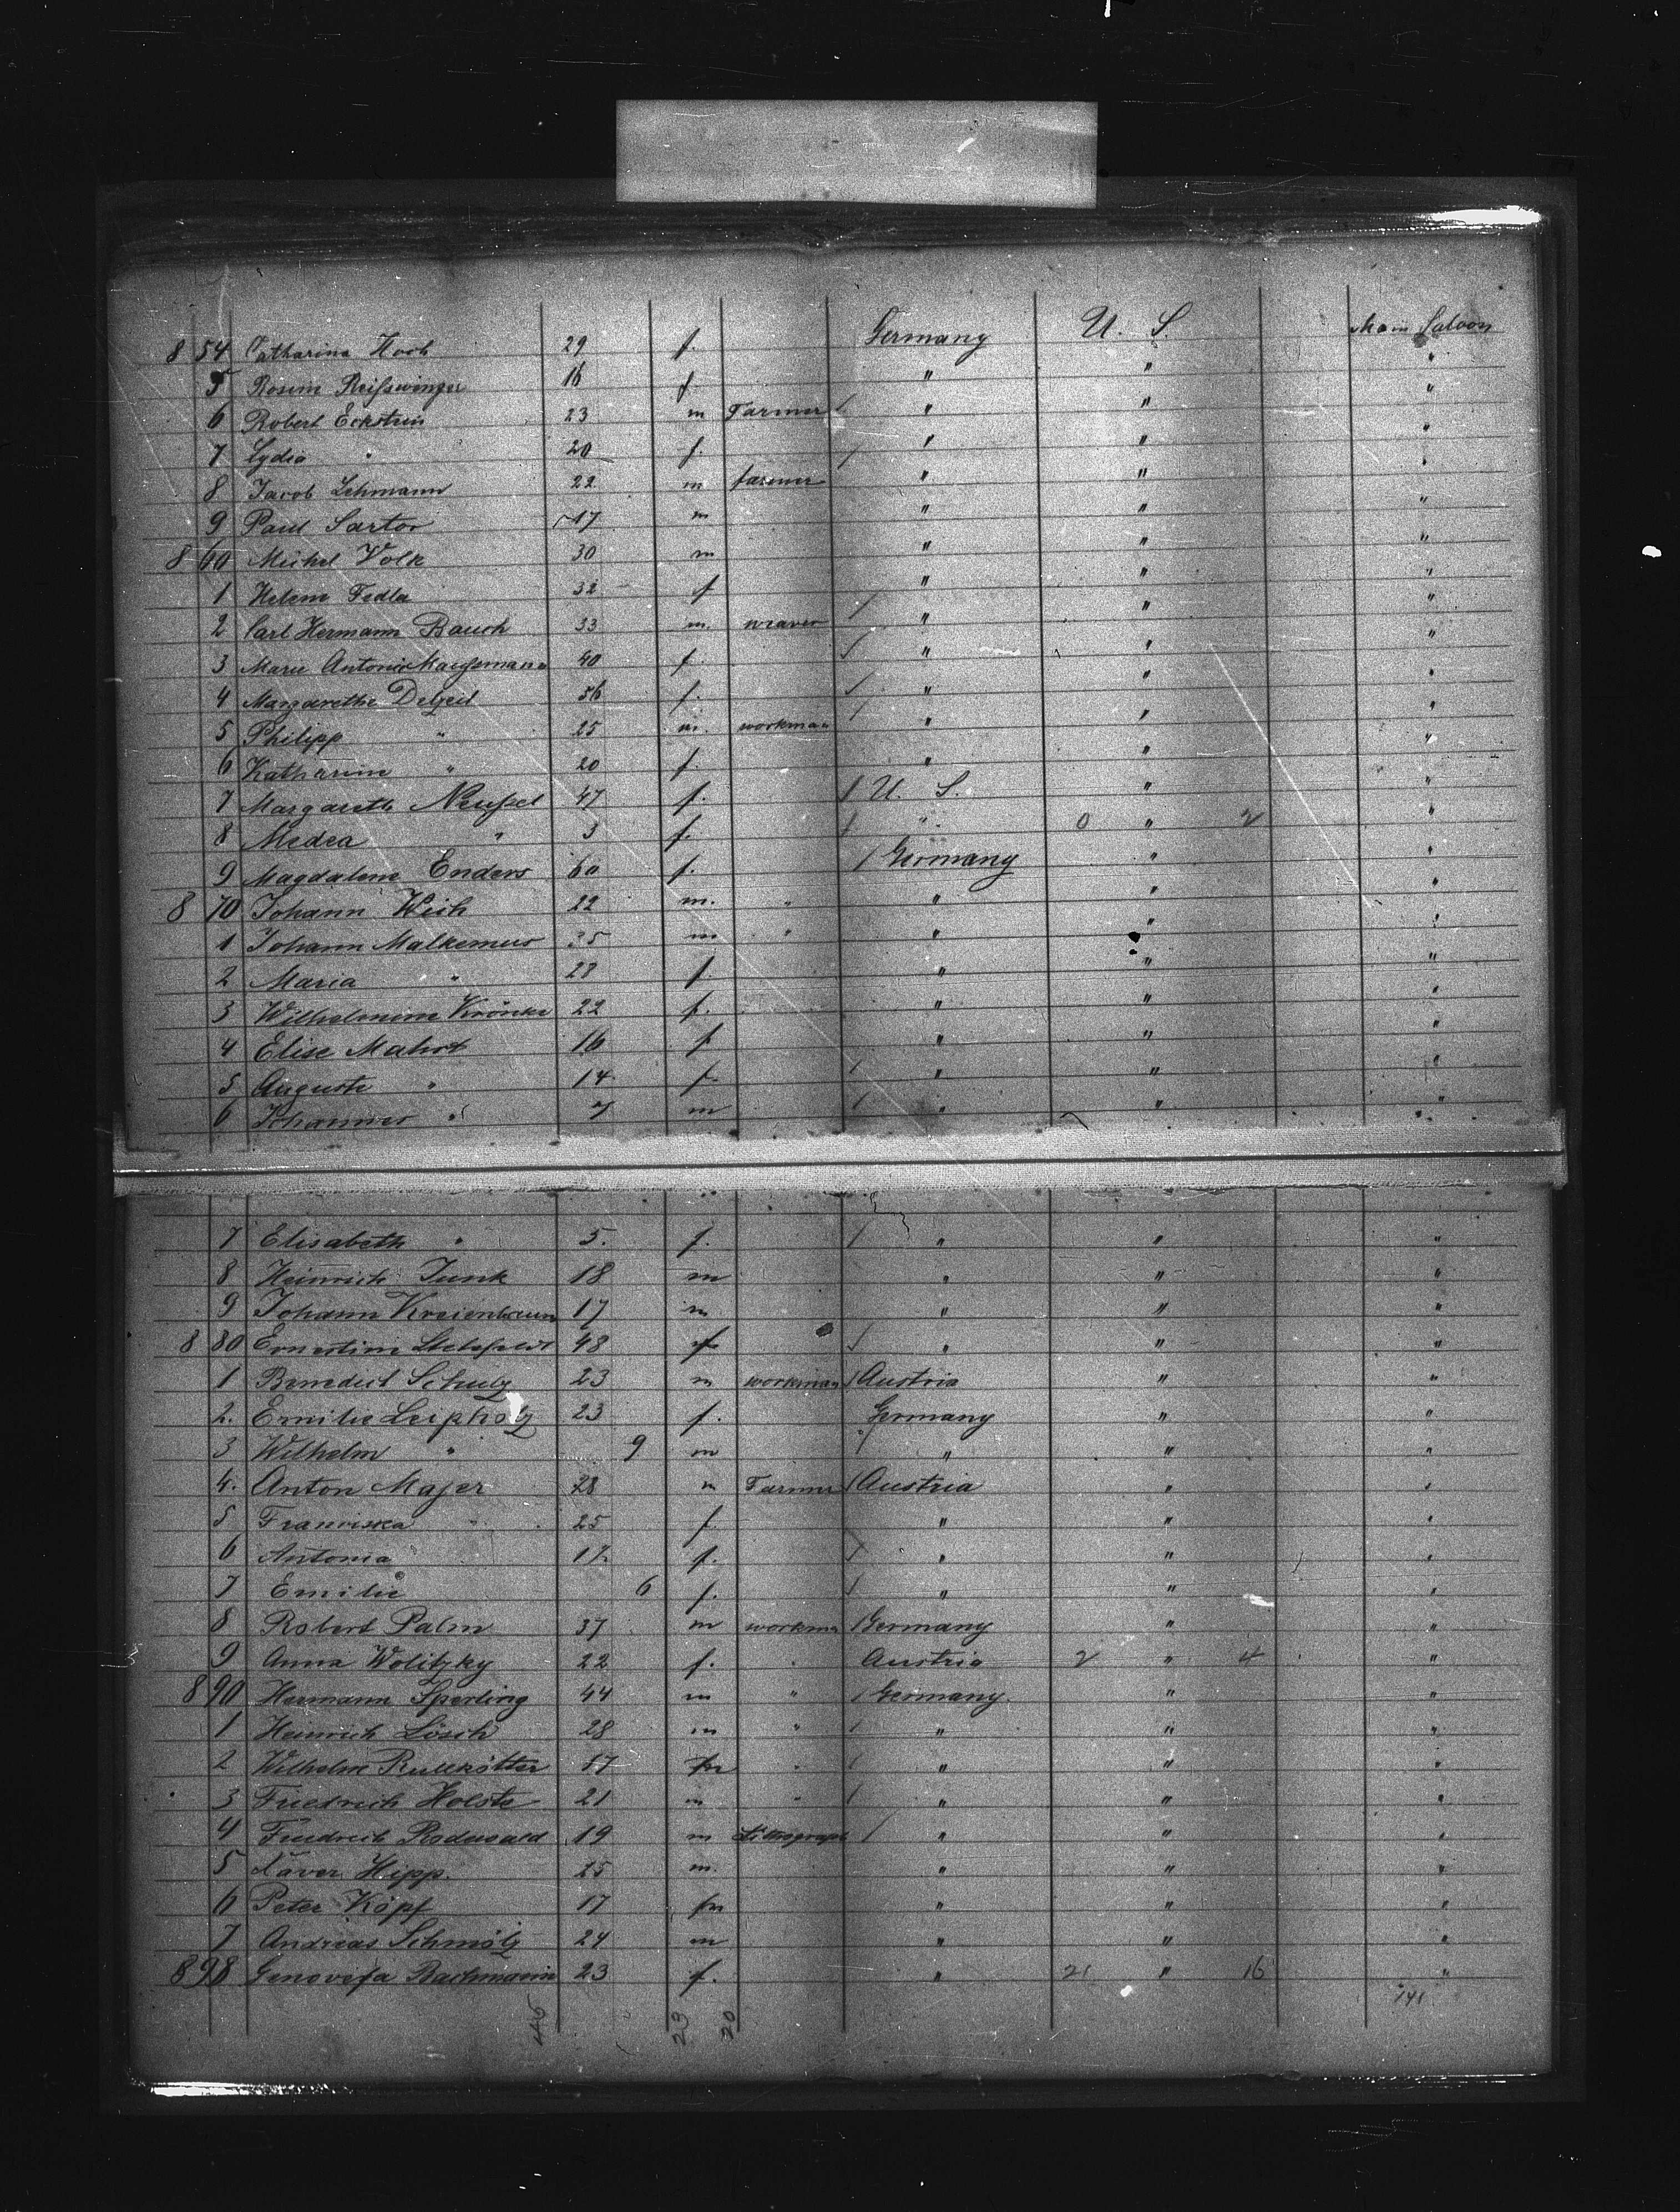 8 54 Catharina Hock 29 f. Germany U. S. Main Saloon
5 Rosine Reißwinger 16 f. " " "
6 Robert Eckstein 23 m Farmer / " " "
7 Lydia " 20 f. / " " "
8 Jacob Lehmann 22 m farmer " " "
9 Paul Sartor 17 m " " "
8 60 Michel Volk 30 m " " "
1 Helene Fedla 32 f " " "
2 Carl Hermann Bauch 33 m. weaver / " " "
3 Marie Antonie 40 f. / " " "
4 Margarethe 56 f. / " " "
5 Philipp " 25 m. workman / " " "
6 Katharine " 20 f. " " "
7 Margareth 47 f. / U. S. " "
8 Medea " 3 f. / " 0 " 2 "
9 Magdalene Enders 60 f. / Germany " "
8 70 Johann Weih 22 m. " " " "
1 Johann Malkemus 35 m " " " "
2 Maria " 27 f. " " "
3 Wilhelmine Krönke 22 f. " " "
4 Elise Mahrt 16 f " " "
5 Auguste " 14 f. / " " "
6 Johannes " 7 m / " " "
7 Elisabeth " 5. f. / " " "
8 Heinrich Junk 18 m " " "
9 Johann Kreienbaum 17 m " " "
8 80 Ernestine 48 f / " " "
1 Benedict Schulz 23 m workman / Austria " "
2. Emilie Leipholz 23 f. Germany " "
3 Wilhelm " 9 m " " "
4. Anton Majer 28 m Farmer / Austria " "
5 Franziska " 25 f. " " "
6 Antonia f. / " " "
7 Emilie 6 f. / " " "
8 Robert Palm 37 m workman / Germany " "
9 Anna Wolitzky 22 f. " Austria 2 " 4 "
8 90 Hermann Sperling 44 m " / Germany. " "
1 Heinrich Lösch 28 m " / " " "
2 Wilhelm Rullkötter 17 m " / " " "
3 Friedrich Holste 21 m " / " " "
4 Friedrich Rodewald 19 m Lithograph / " " "
5 Xaver Hipp. 25 m. " " "
6 Peter Köpf 17 m " " "
7 Andreas Schmölz 24 m " " "
8 98 Genovefa Bachmann 23 f. " 21 " 16 "
141
23 20